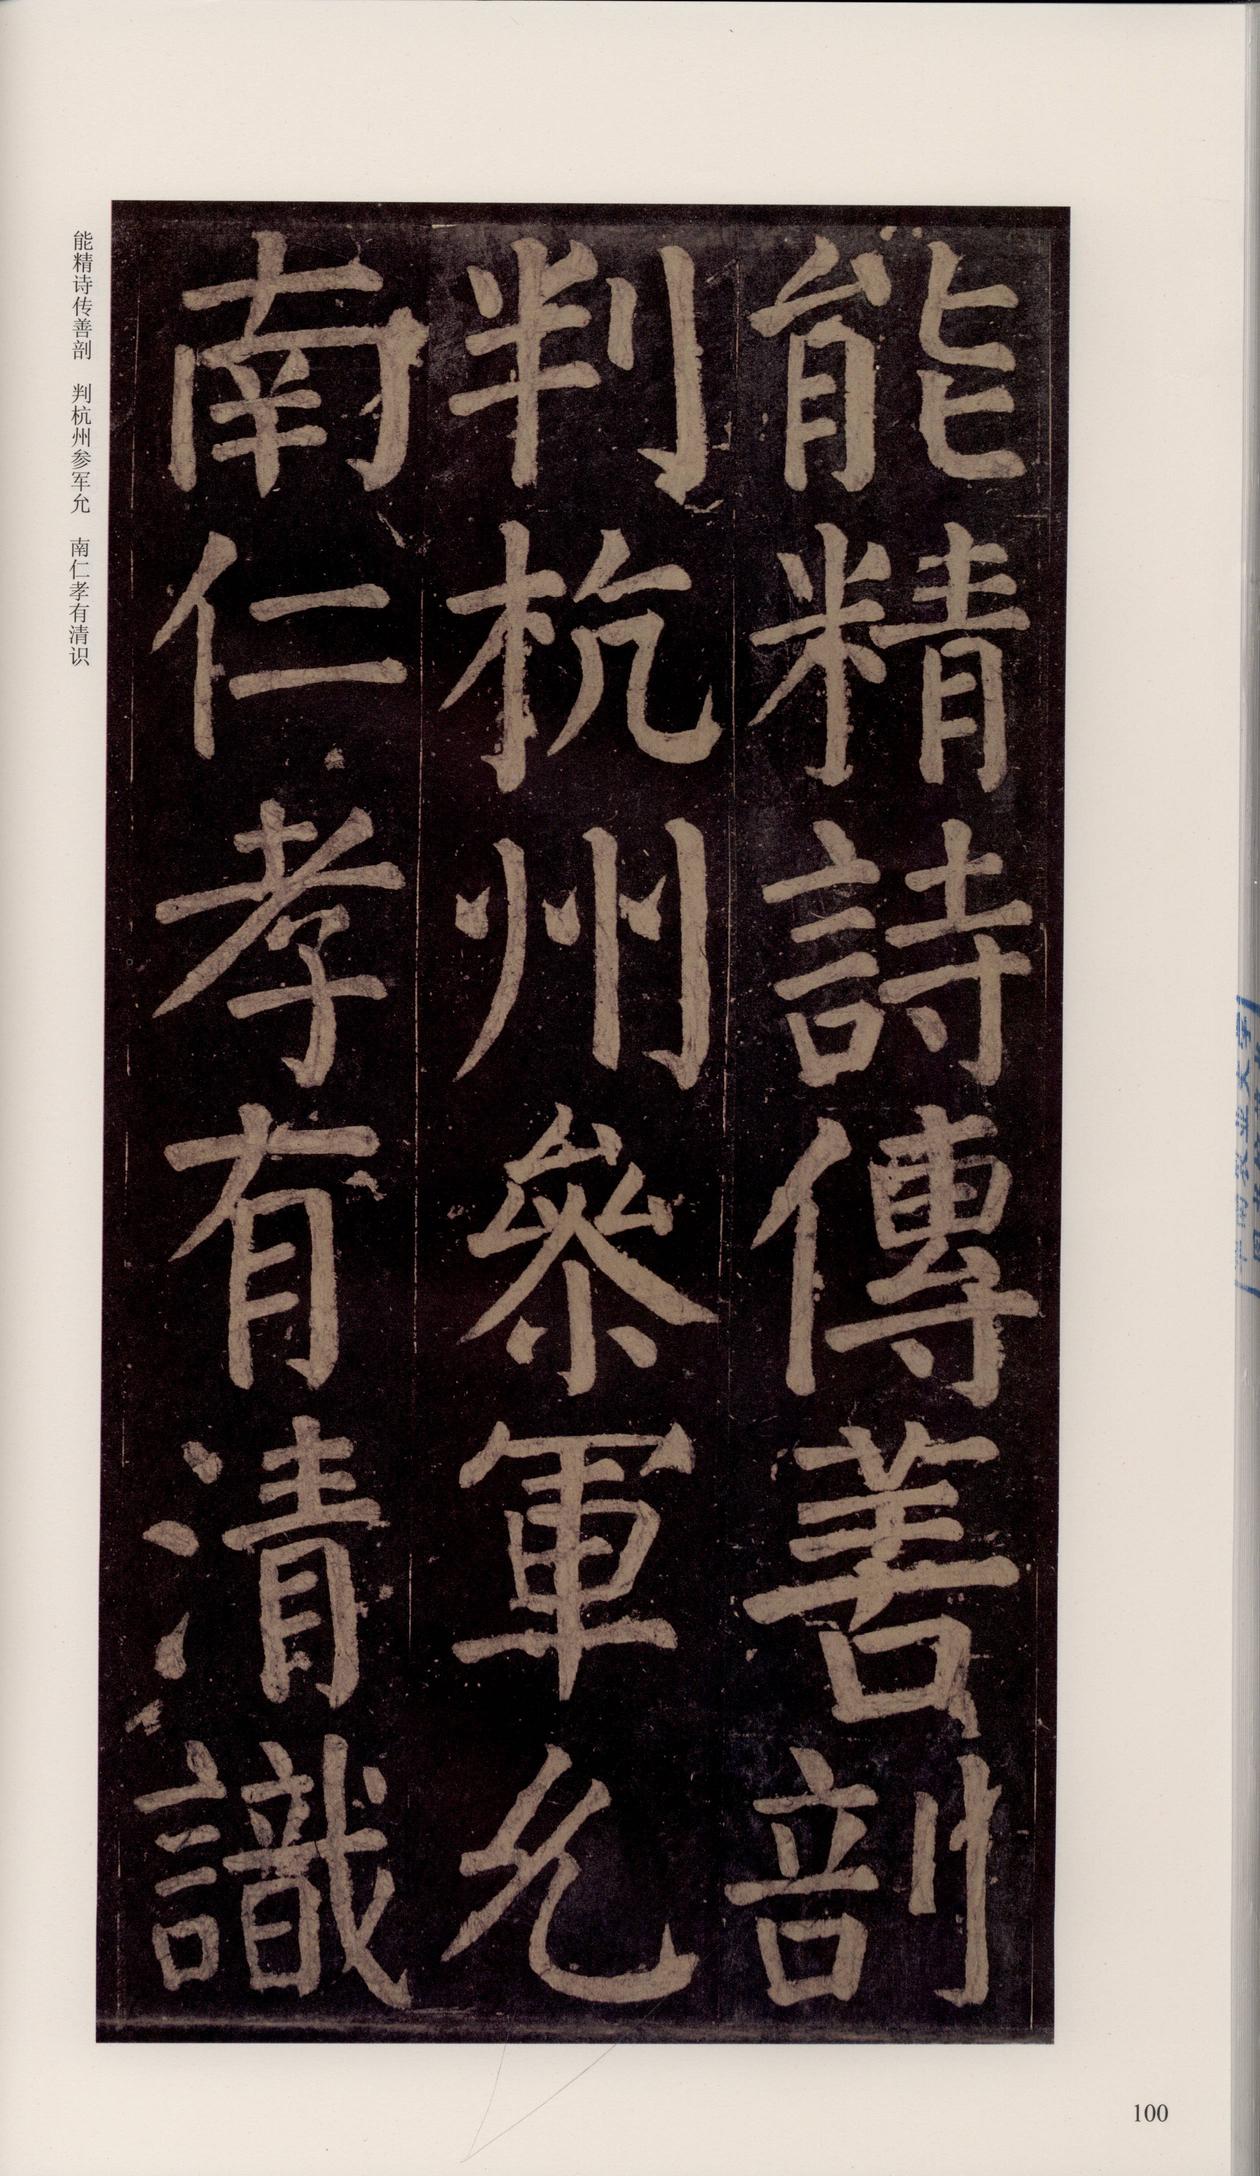 能精詩傳善剖
判杭州參軍允
南仁孝有清識
能精诗传善剖　判杭州参军允　南仁孝有清识
100